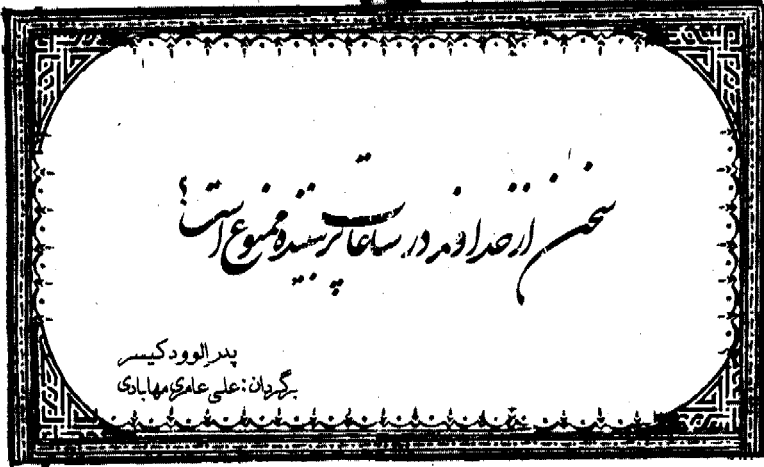 سخن از خداوند در ساعات پر بیننده ممنوع است؟
پدر الوود کیسر
برگردان: علی عامری مهابادی